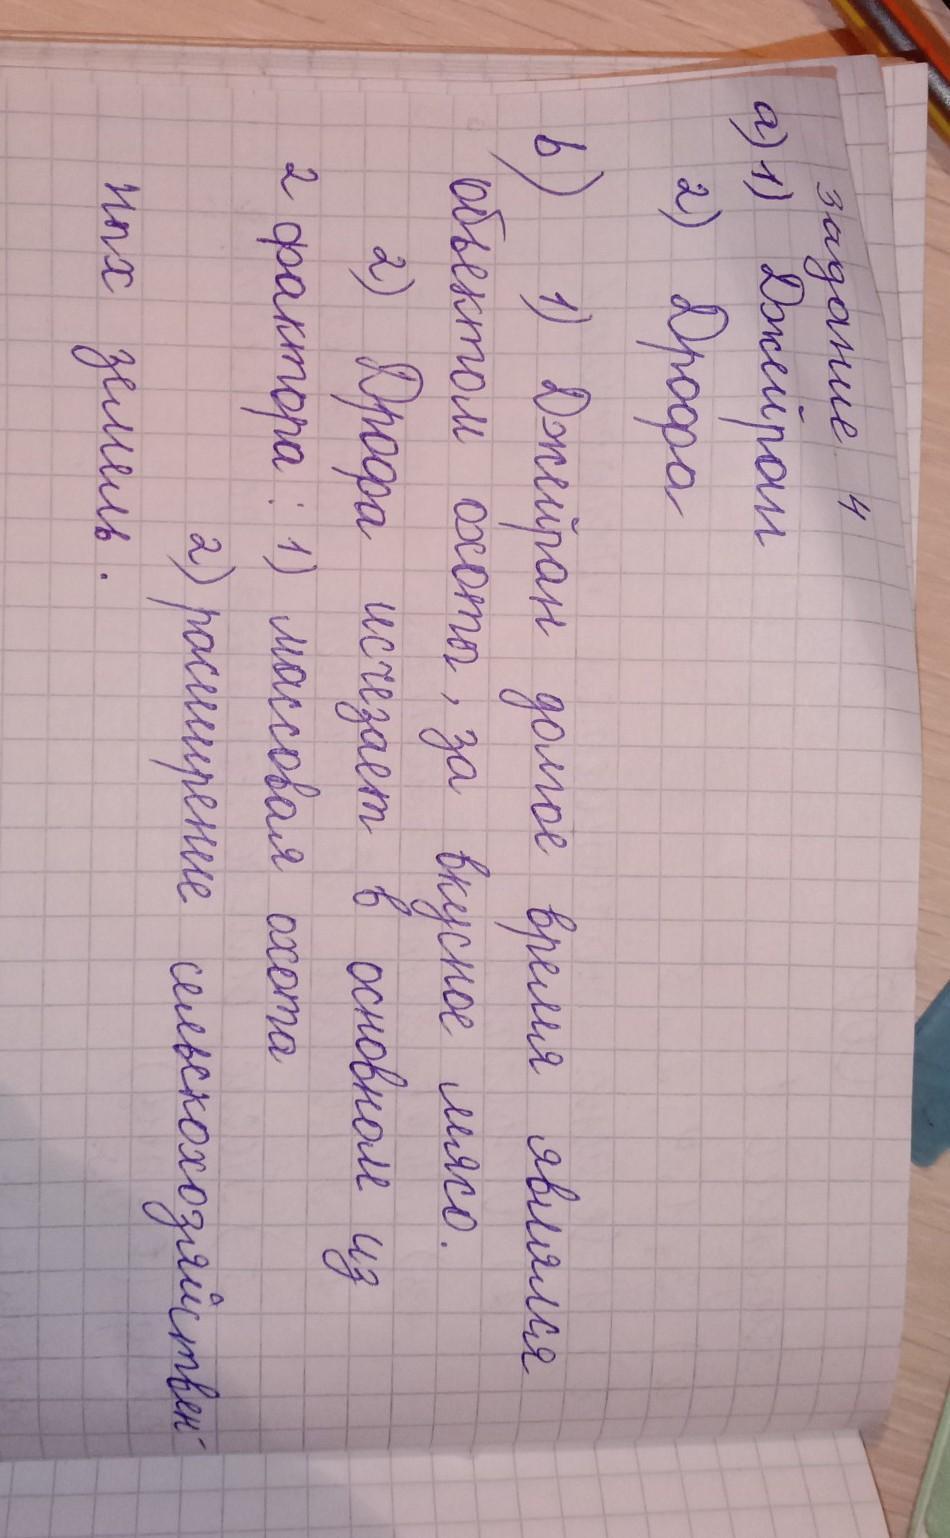 задание 4
а) 1) Джейран
2) Дрофа
b) 1) Джейран долгое время являлся
объектом охоты, за вкусное мясо.
2) Дрофа исчезает в основном из
2 фактора: 1) массовая охота
2) расширение сельскохозяйствен-
ных земель.